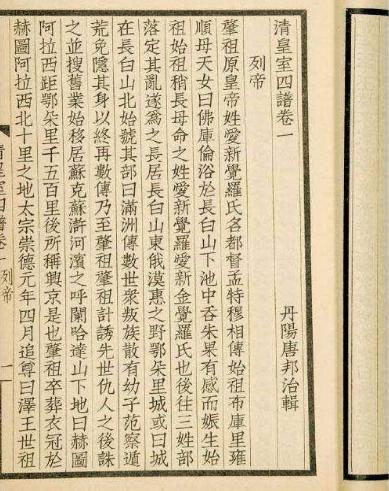 清皇室四譜卷一
丹陽唐邦治輯
列帝
肇祖原皇帝姓愛新覺羅氏名都督孟特穆相傳始祖布庫里雍
順母天女曰佛庫倫浴於長白山下池中吞朱果有感而娠生始
祖始祖稍長母命之姓愛新覺羅愛新金覺羅氏也後往三姓部
落定其亂遂為之長居長白山東俄漠惠之野鄂朵里城或曰城
在長白山北始號其部曰滿洲傳數世衆叛族散有幼子范察遁
荒免隱其身以終再數傳乃至肇祖肇祖計誘先世仇人之後誅
之並搜舊業始移居蘇克蘇滸河濱之呼闌哈達山下地曰赫圖
阿拉西距鄂朵里千五百里後所稱興京是也肇祖卒葬衣冠於
赫圖阿拉西北十里之地太宗崇德元年四月追尊曰澤王世祖
清皇室四譜卷一 列帝 一